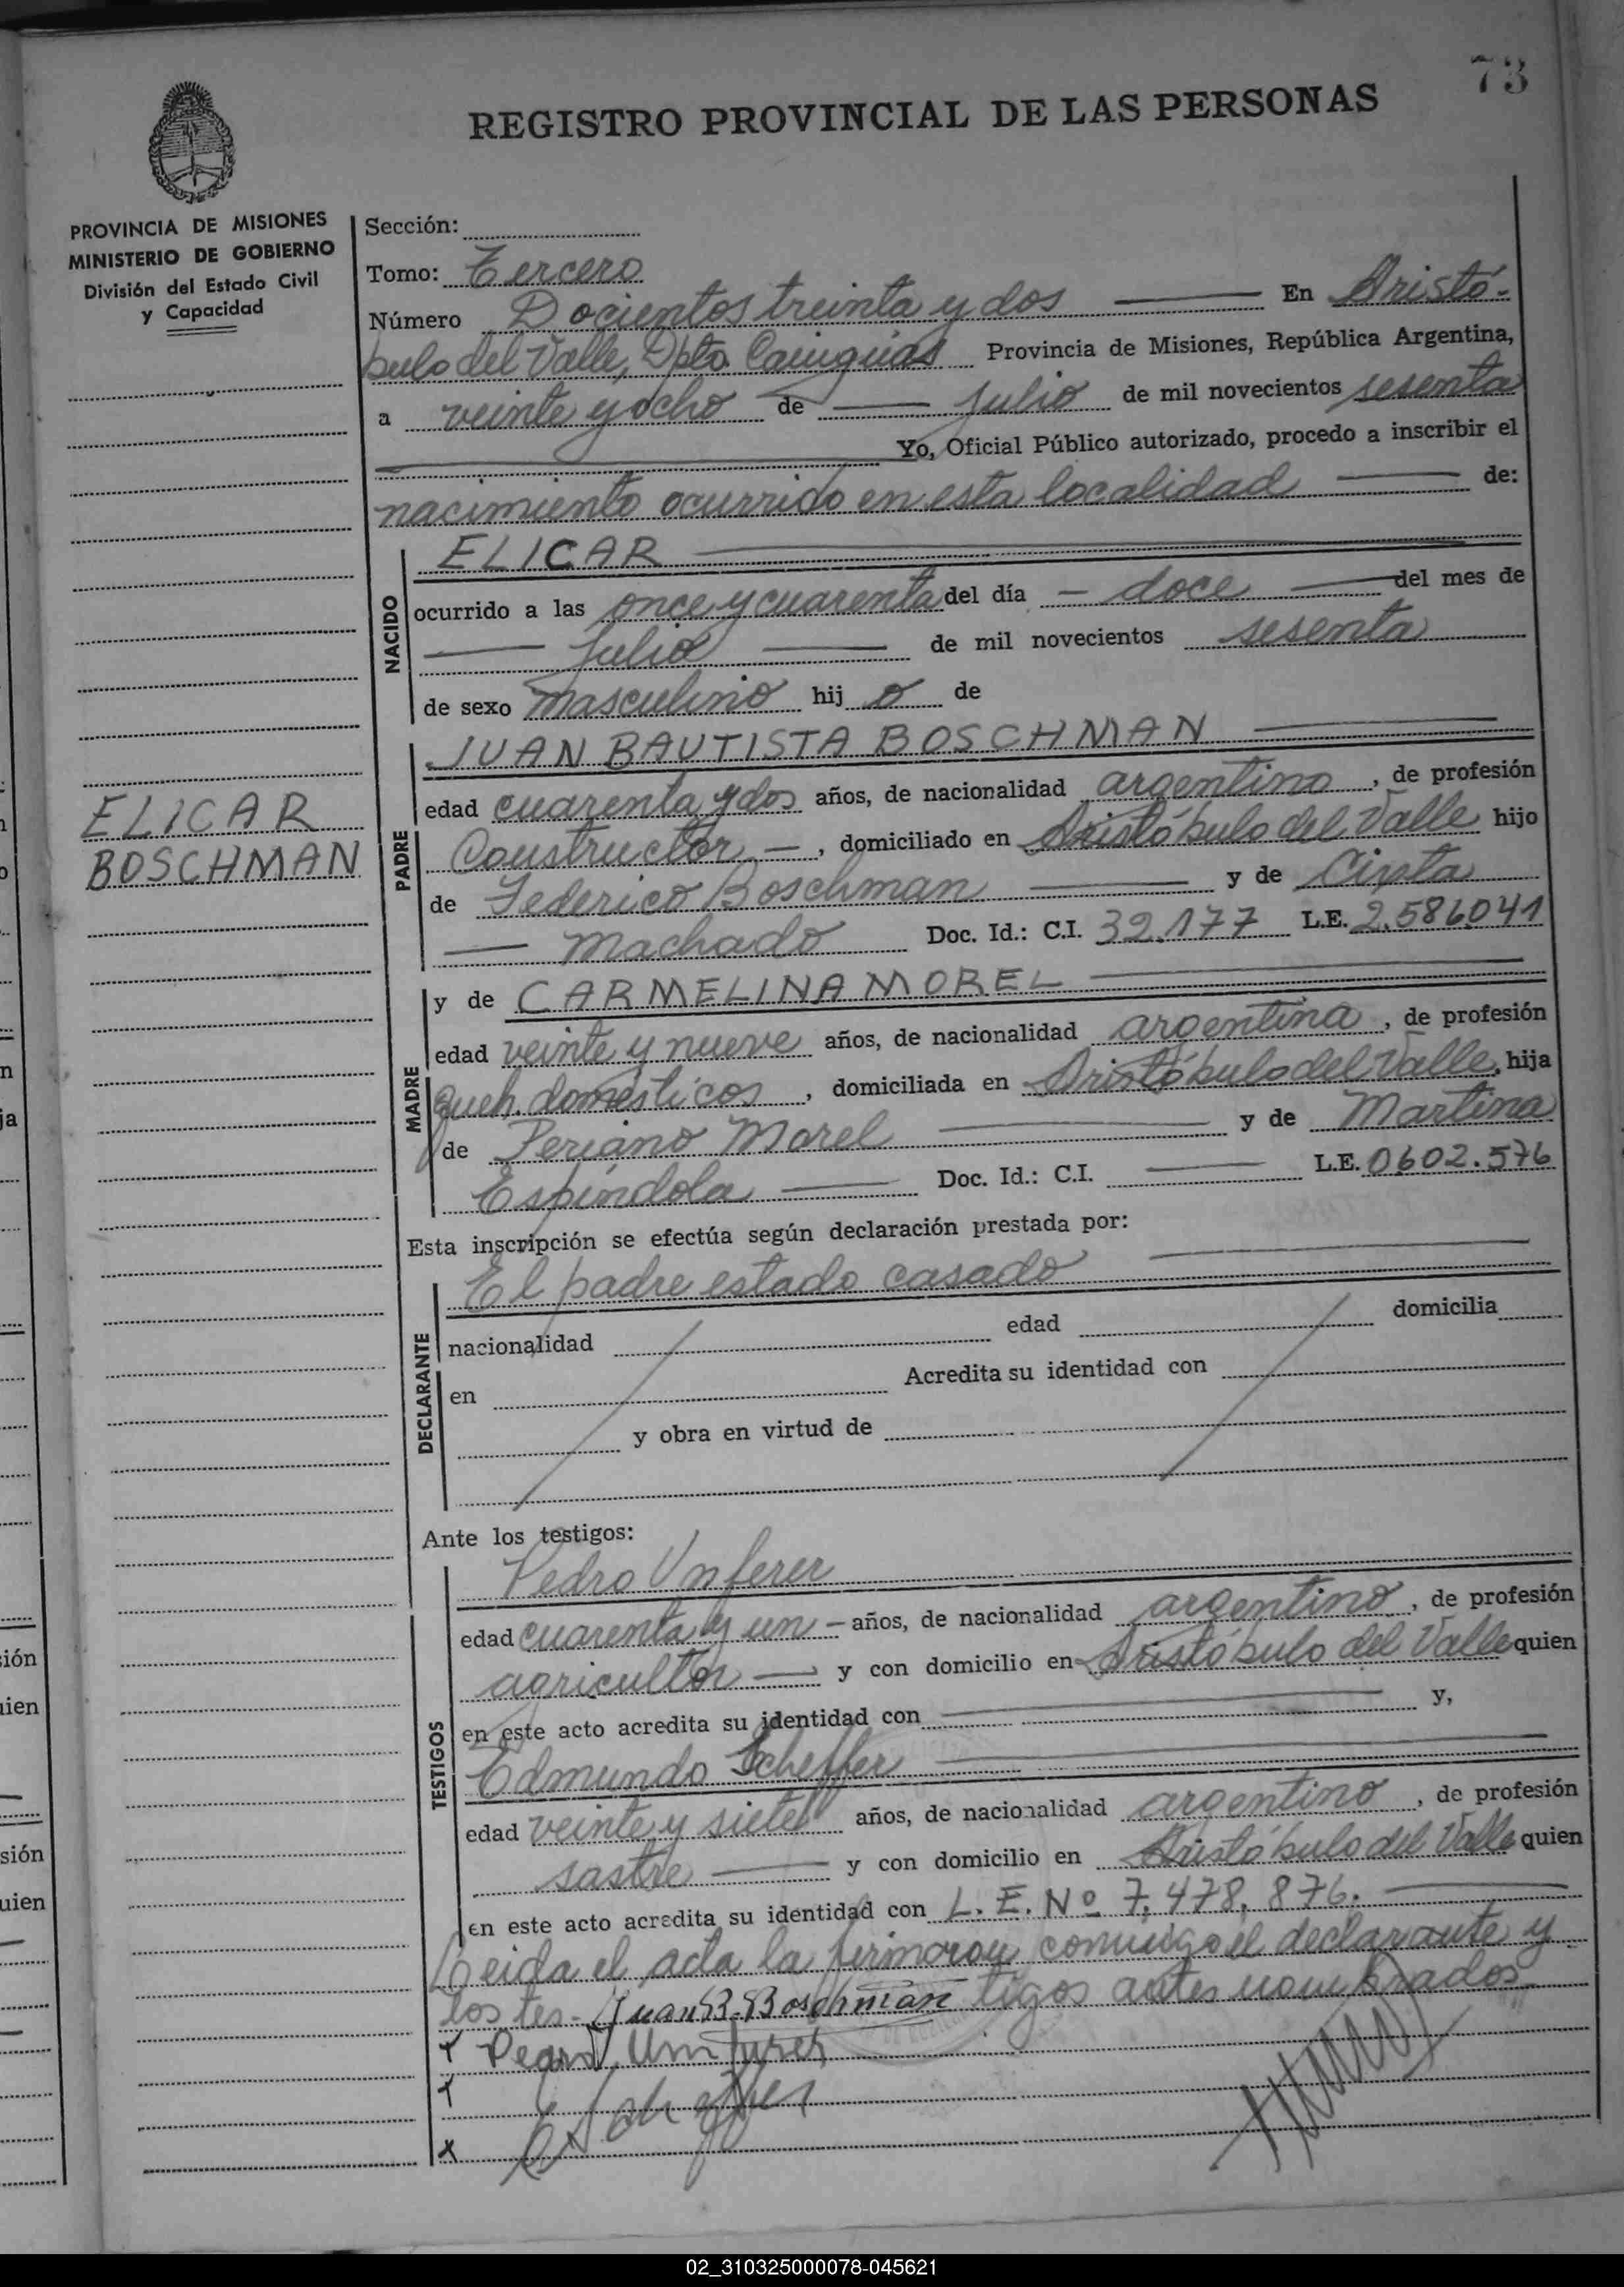 73
REGISTRO PROVINCIAL DE LAS PERSONAS
PROVINCIA DE MISIONES
MINISTERIO DE GOBIERNO
División del Estado Civil
y Capacidad
ELICAR
BOSCHMAN
Sección:
Tomo: Tercero
Número Docientos treinta y dos En Aristó-
bulo del Valle, Dpto. Cainguás Provincia de Misiones, República Argentina,
a veinte y ocho de Julio de mil novecientos sesenta
Yo, Oficial Público autorizado, procedo a inscribir el
nacimiento ocurrido en esta localidad de:
NACIDO
ELICAR
ocurrido a las once y cuarenta del día doce del mes de
Julio de mil novecientos sesenta
de sexo masculino hij o de
PADRE
JUAN BAUTISTA BOSCHMAN
edad cuarenta y dos años, de nacionalidad argentino, de profesión
Constructor, domiciliado en Aristóbulo del Valle hijo
de Federico Boschman y de Cinta
Machado Doc. Id.: C.I. 32.177 L.E. 2.586.041
MADRE
y de CARMELINA MOREL
edad veinte y nueve años, de nacionalidad argentina, de profesión
queh. domésticos, domiciliada en Aristóbulo del Valle, hija
de Morel y de Martina
Espíndola Doc. Id.: C.I. L.E. 0602.576
Esta inscripción se efectúa según declaración prestada por:
DECLARANTE
El padre estado casado
nacionalidad edad domicilia
en Acredita su identidad con
y obra en virtud de
Ante los testigos:
TESTIGOS
Pedro Unferer
edad cuarenta y un años, de nacionalidad argentino, de profesión
agricultor y con domicilio en Aristóbulo del Valle quien
en este acto acredita su identidad con y,
Edmundo Scheffer
edad veinte y siete años, de nacionalidad argentino, de profesión
sastre y con domicilio en Aristóbulo del Valle quien
en este acto acredita su identidad con L. E. Nº 7.478.876.
Leida el acta la firmaron conmigo el declarante y
los tes- Juan B. Boschman tigos antes nombrados
Pedro
02_310325000078-045621